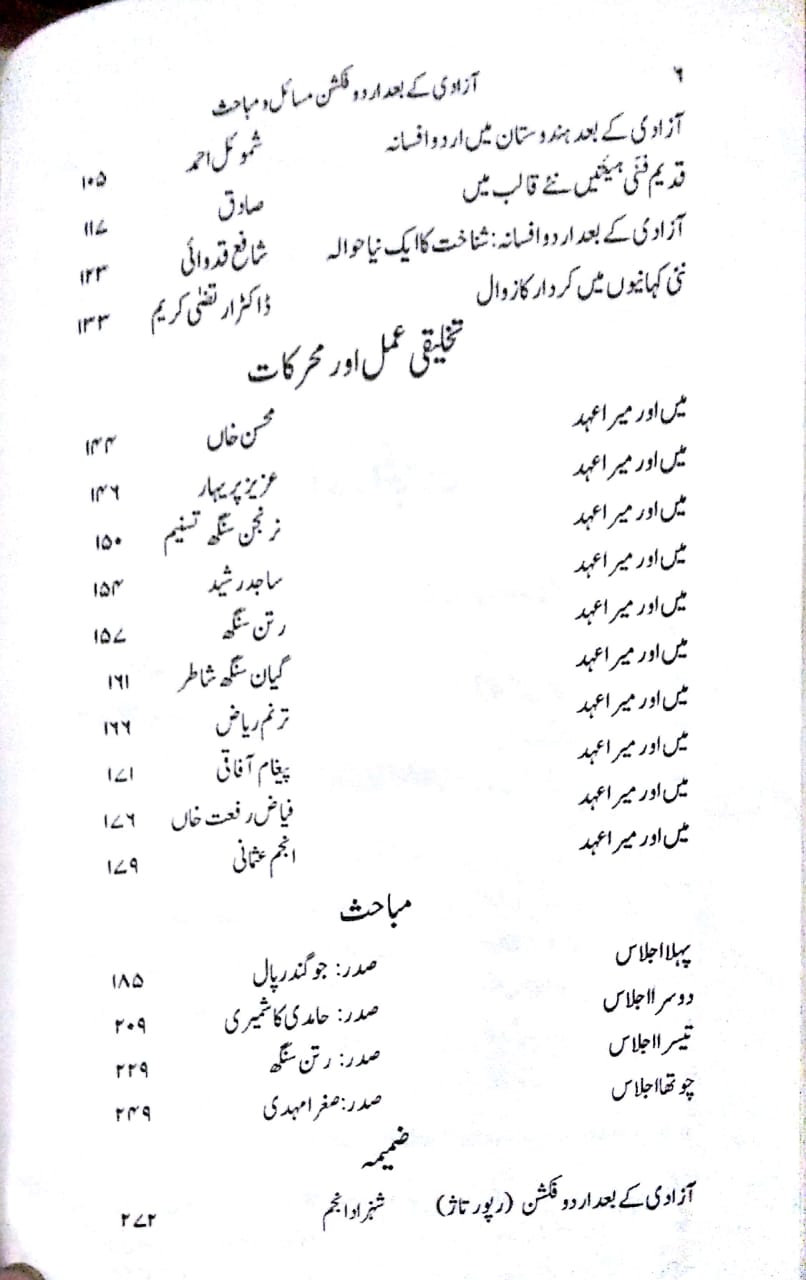 ۶
آزادی کے بعد اردو فکشن مسائل و مباحث
آزادی کے بعد ہندوستان میں اردو افسانہ شموئل احمد ۱۰۵
قدیم فنّی ہیئتیں نئے قالب میں صادق ۱۱۷
آزادی کے بعد اردو افسانہ: شناخت کا ایک نیا حوالہ شافع قدوائی ۱۲۳
نئی کہانیوں میں کردار کا زوال ڈاکٹر ارتضٰی کریم ۱۳۳
تخلیقی عمل اور محرکات
میں اور میرا عہد محسن خاں ۱۴۴
میں اور میرا عہد عزیز پریہار ۱۴۶
میں اور میرا عہد نرنجن سنگھ تسنیم ۱۵۰
میں اور میرا عہد ساجد رشید ۱۵۴
میں اور میرا عہد رتن سنگھ ۱۵۷
میں اور میرا عہد گیان سنگھ شاطر ۱۶۱
میں اور میرا عہد ترنم ریاض ۱۶۶
میں اور میرا عہد پیغام آفاقی ۱۷۱
میں اور میرا عہد فیاض رفعت خاں ۱۷۶
میں اور میرا عہد انجم عثمانی ۱۷۹
مباحث
پہلا اجلاس صدر: جوگندر پال ۱۸۵
دوسرا اجلاس صدر: حامدی کاشمیری ۲۰۹
تیسرا اجلاس صدر: رتن سنگھ ۲۲۹
چوتھا اجلاس صدر: صغرا مہدی ۲۴۹
ضمیمہ
آزادی کے بعد اردو فکشن (رپورتاژ) شہزاد انجم ۲۷۲